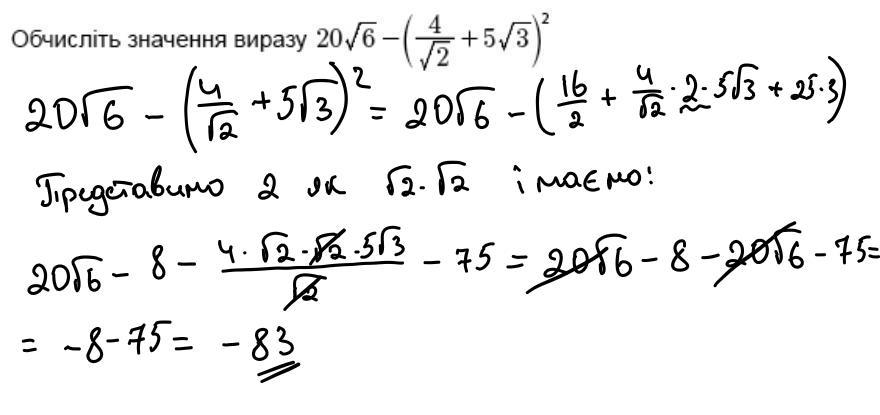 Обчисліть значення виразу 20√6 − (4/√2 + 5√3)²
20√6 − (4/√2 + 5√3)² = 20√6 − (16/2 + 4/√2 · 2 · 5√3 + 25·3)
Представимо 2 як √2·√2 і маємо:
20√6 − 8 − (4·√2·√2·5√3)/√2 − 75 = 20√6 − 8 − 20√6 − 75 =
= −8 − 75 = −83